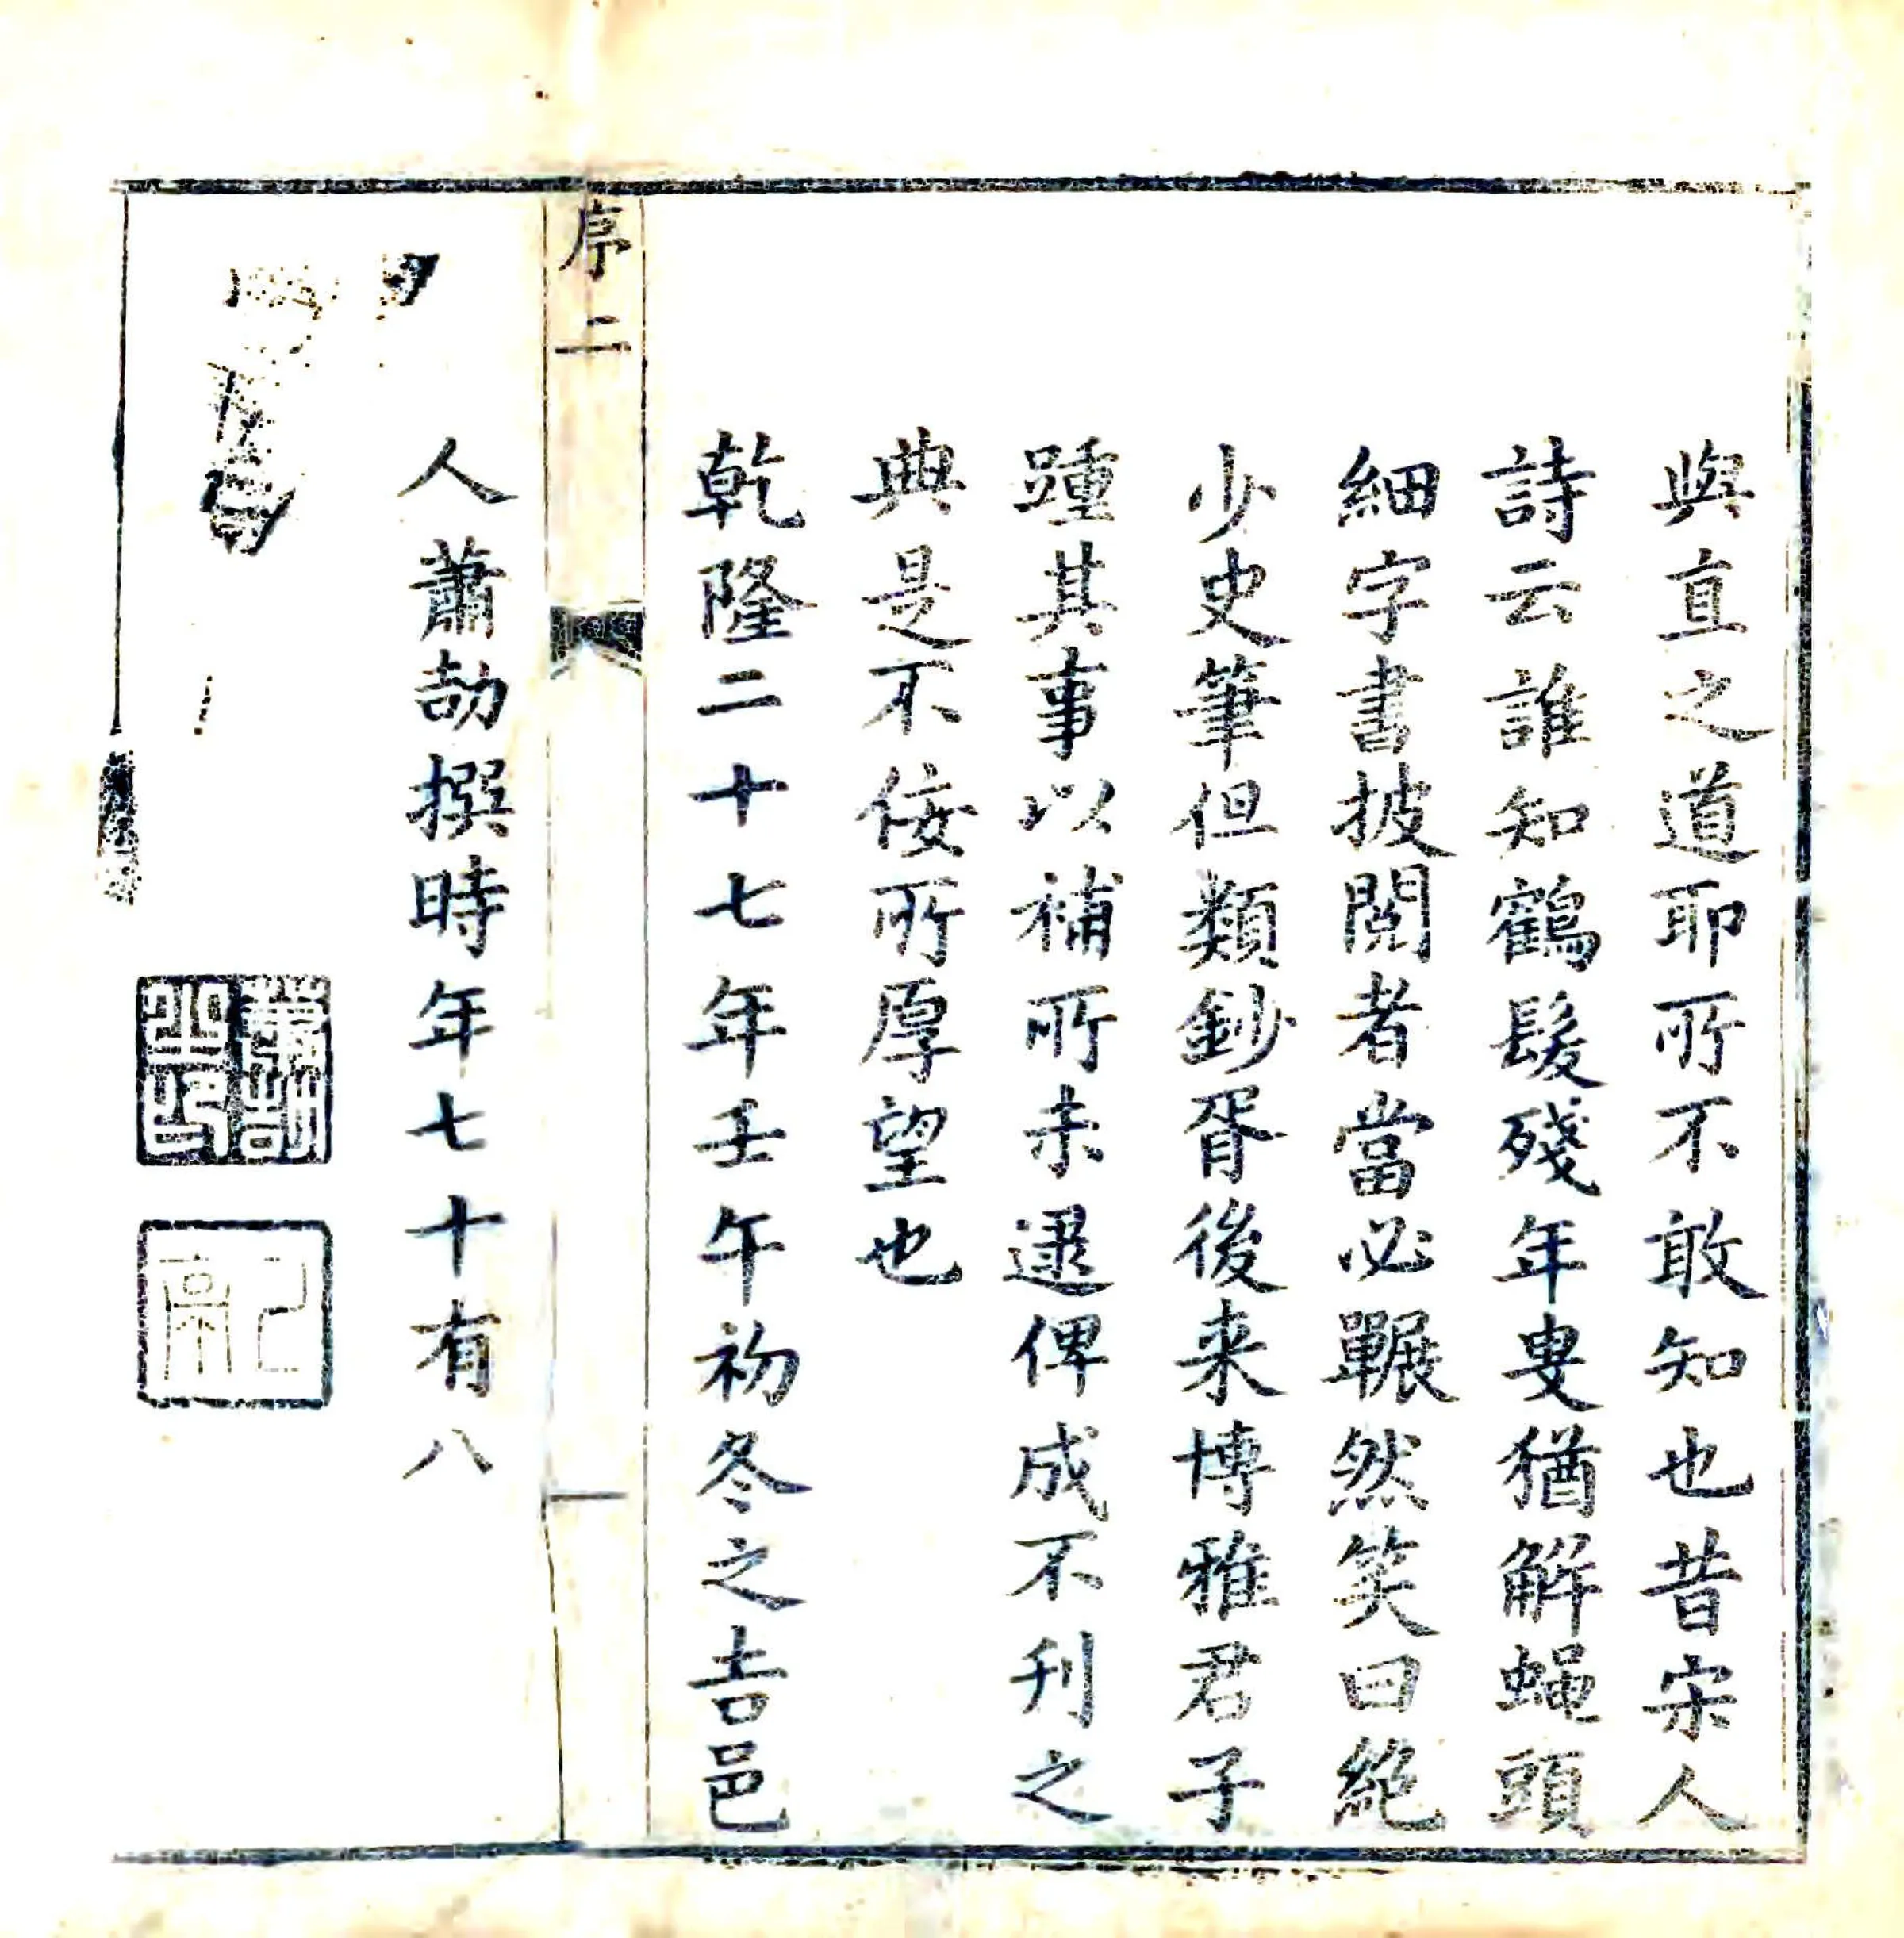 與直之道耶所不敢知也昔宋人
詩云誰知鶴髮殘年叟猶解蝿頭
細字書披閱者當必囅然笑曰絶
少史筆但類鈔胥後来博雅君子
踵其事以補所未逮俾成不刊之
典是不佞所厚望也
乾隆二十七年壬午初冬之吉邑
序二
人蕭劼撰時年七十有八
蕭劼之印